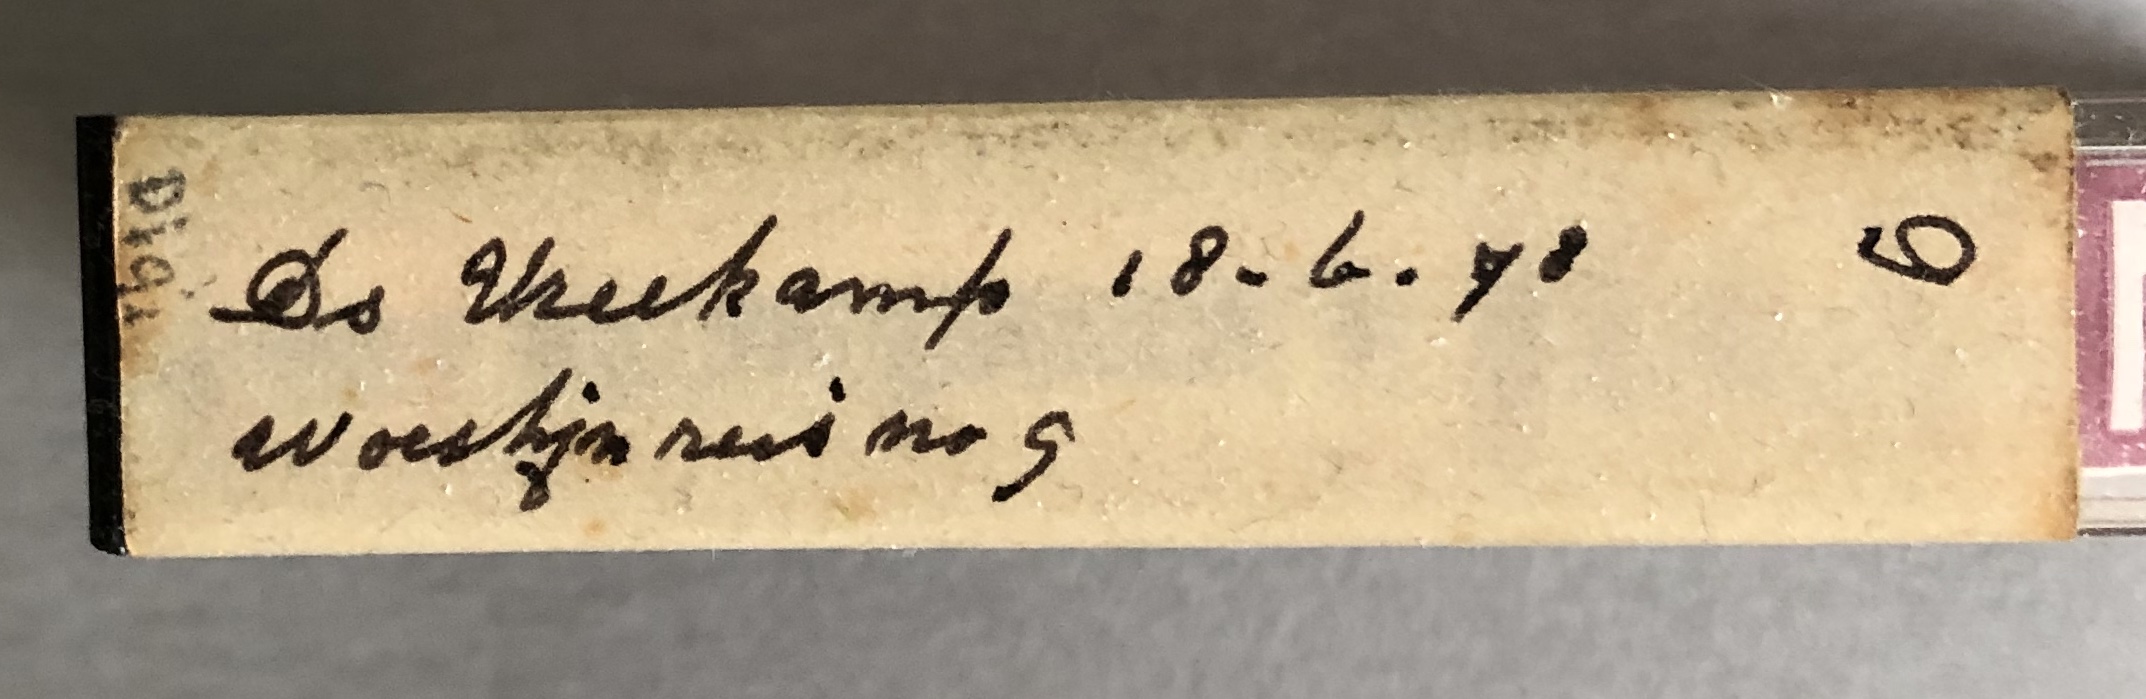 Ds Vreekamp 18-6.78
woestijnreis no 9
9
Digi